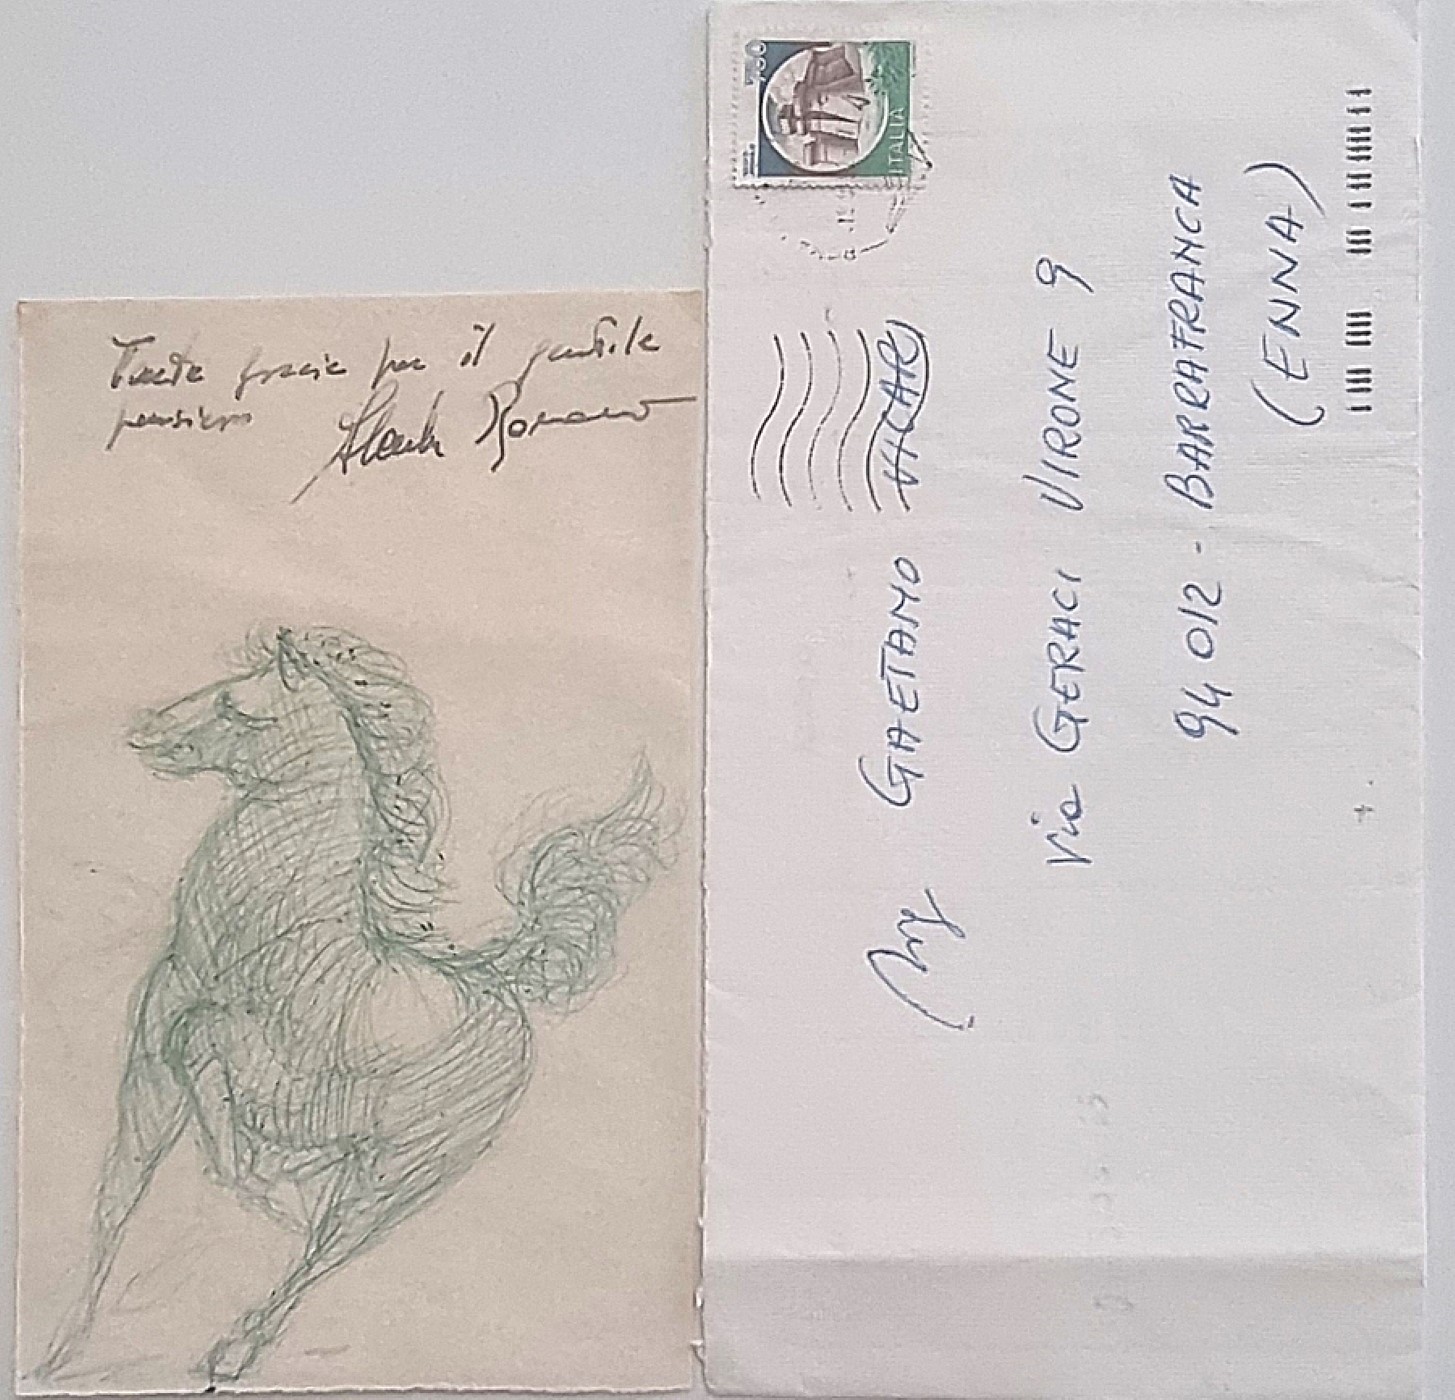 Tante grazie per il gentile
pensiero
Romano
750
ITALIA
Sig GAETANO VICARI
Via GERACI VIRONE 9
94012 - BARRAFRANCA
(ENNA)